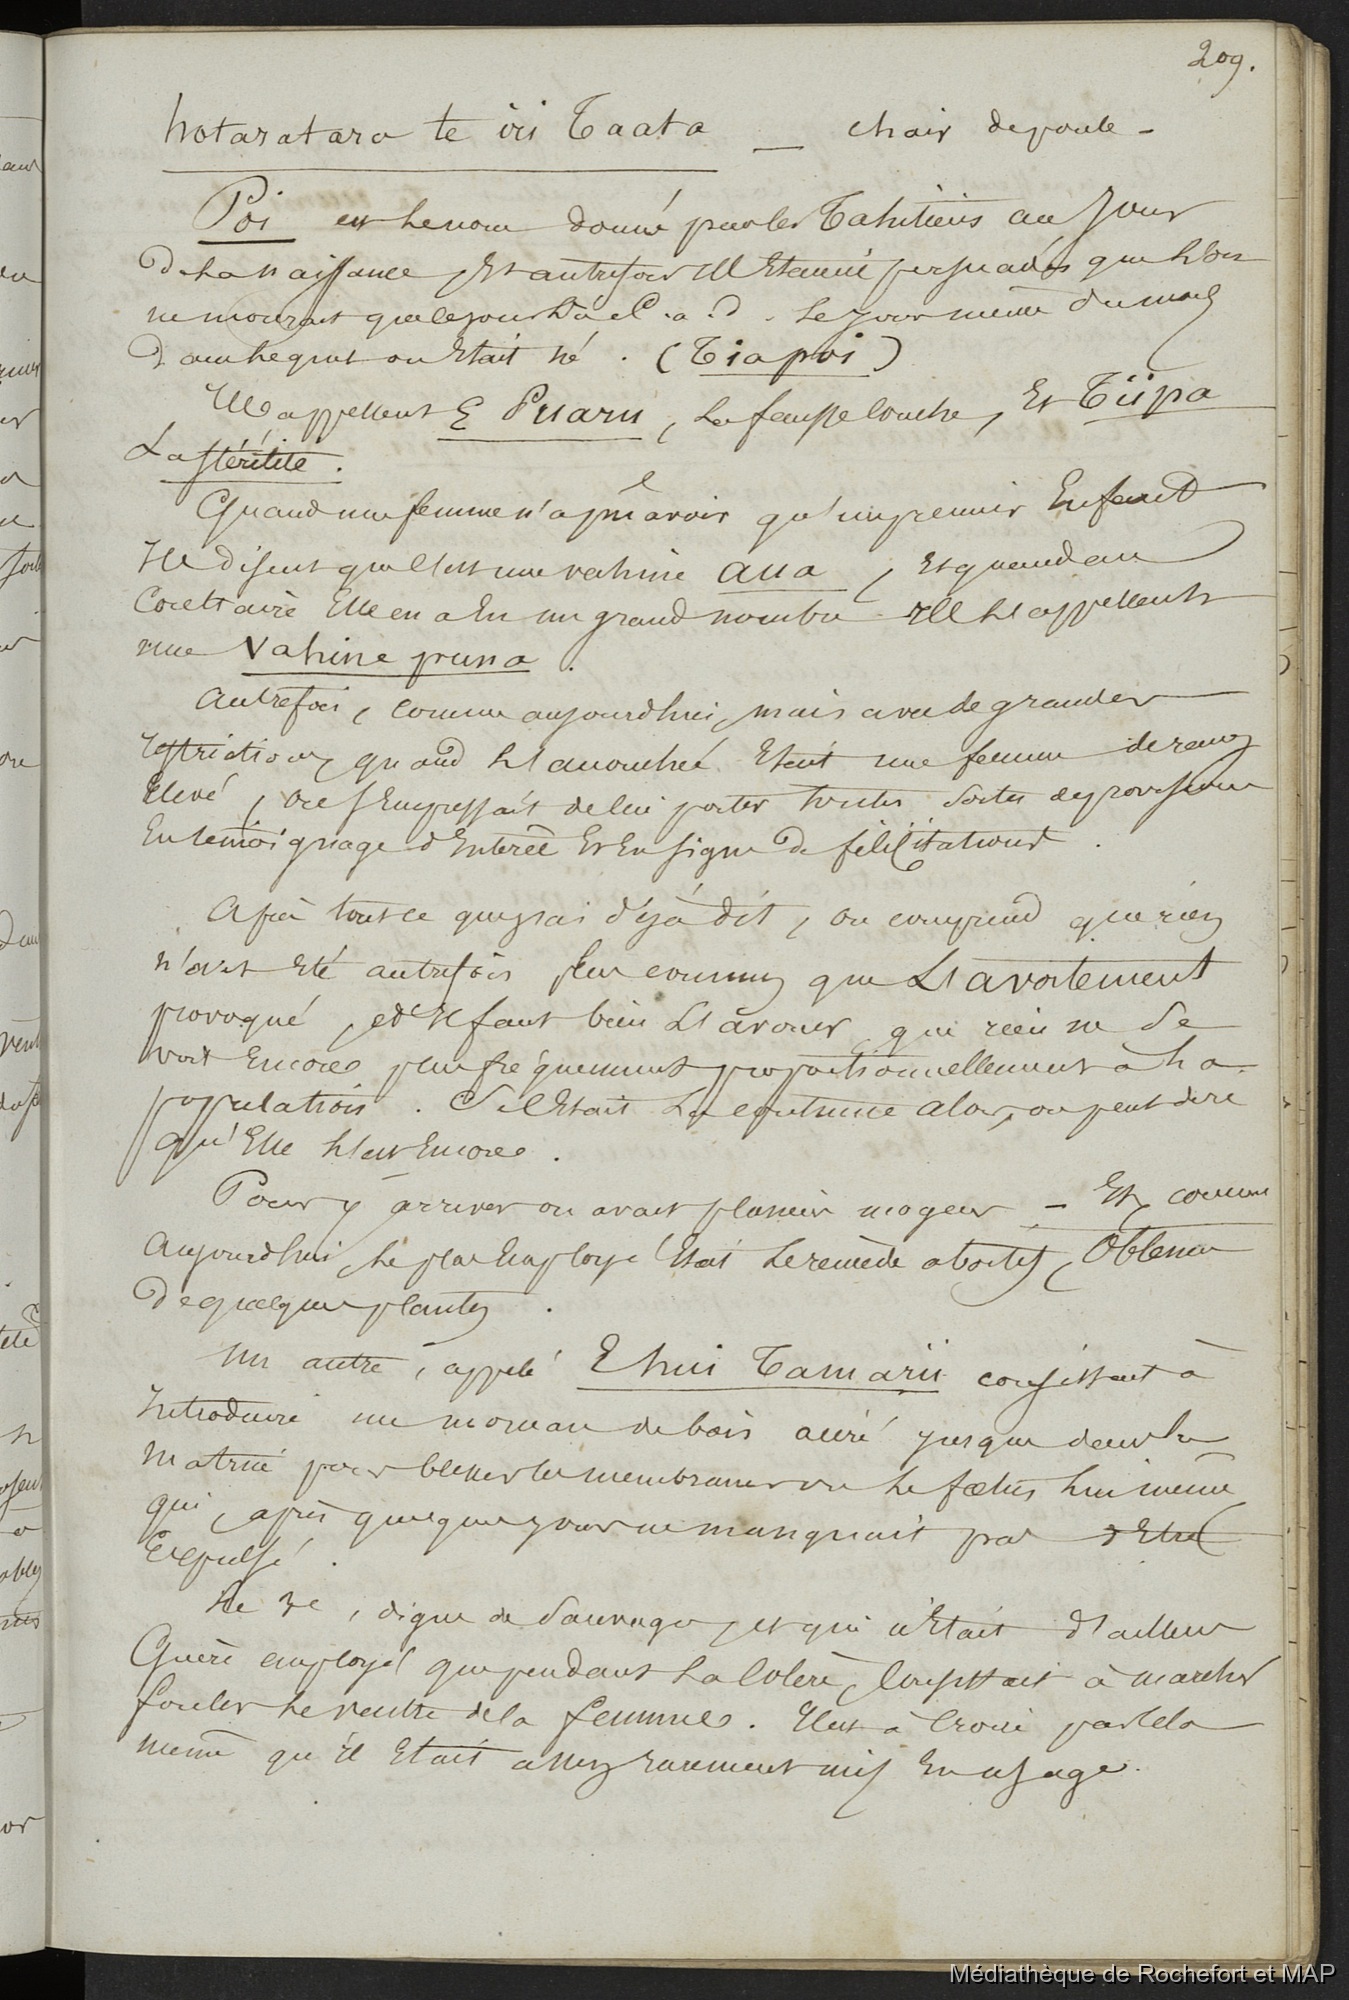 209.
hotaratara te iri Taata _ chair de poule -
Poi est le nom donné par les Tahitiens au Jour
de la naissance, Et autrefois Ils Etaient persuadés que l'on
ne mourait que le jour Poi C. a. d. le jour même du mois
dans lequel on Etait né. (Tiapoi)
Ils appellent E Puaru, la fausse couche, Et Tiipa
La stérilité.
Quand une femme n'a pu avoir qu'un premier Enfant
Ils disent que c'est une vahine aua, Et quand au
Contraire Elle en a Eu un grand nombre Ils l'appellent
une Vahine puna.
Autrefois, comme aujourd'hui, mais avec de grandes
restrictions, quand l'accouchée Etait une femme de rang
Elevé, on s'Empressait de lui porter toutes sortes de provisions
En témoignage d'Intérêt Et En signe de félicitations.
Après tout ce que j'ai déjà dit, on comprend que rien
n'avait Eté autrefois plus commun que L'avortement
provoqué, et Il faut bien L'avouer, que rien ne se
voit Encore plus fréquemment proportionnellement à la
population. S'il Etait la coutume alors, on peut dire
qu'Elle l'est Encore.
Pour y arriver on avait plusieurs moyens - Et, comme
Aujourd'hui, le plus Employé Etait le remède abortif, Obtenu
de quelques plantes.
Un autre, appelé E hui Tamarii consistant à
Introduire un morceau de bois acéré jusque dans la
Matrice pour blesser les membranes ou le fœtus lui même
qui, après quelques jours ne manquait pas d'Etre
Expulsé.
Le 3e, digne de Sauvages, et qui n'Etait d'ailleurs
Guère employé que pendant la Colère, Consistait à marcher
fouler le ventre de la femme. Il est à Croire par cela
même qu'Il Etait assez rarement mis En usage.
Médiathèque de Rochefort et MAP